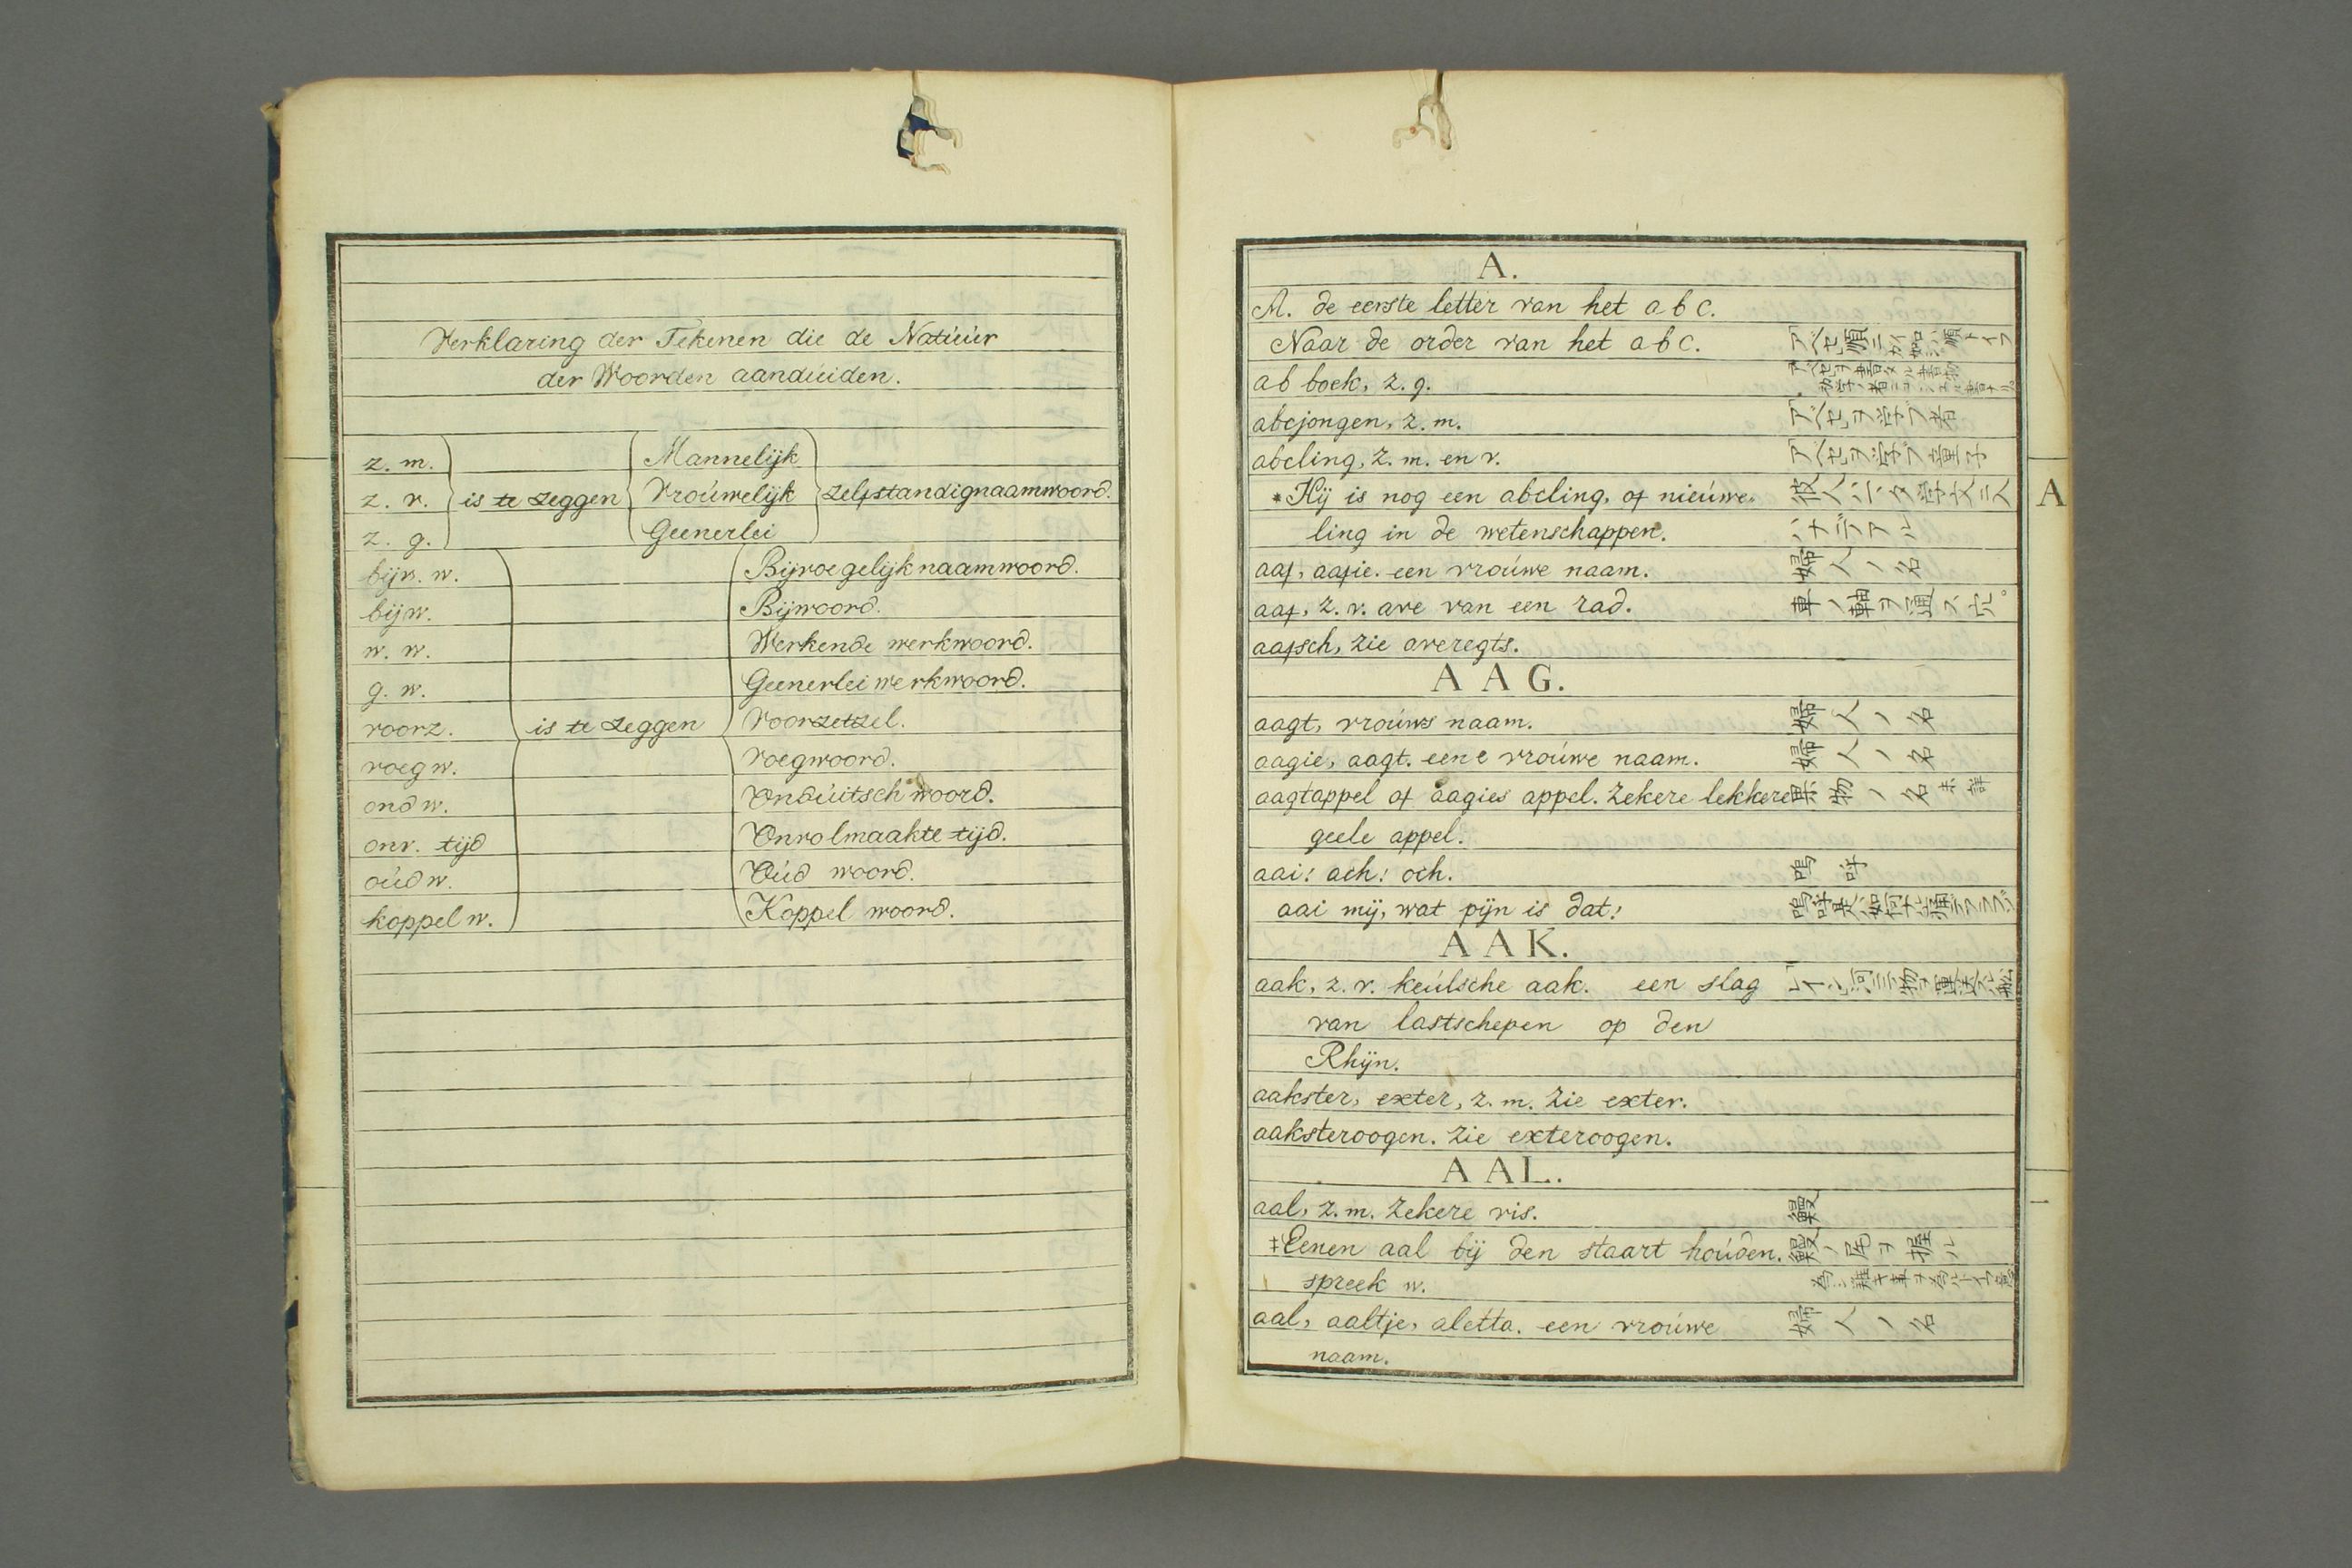 Verklaring der Tekenen die de Natúúr
der Woorden aandúiden.
z. m.
z. v. is te zeggen
z. g.
Mannelijk
Vroúwelijk zelfstandignaamwoord.
Geenerlei
bijv. w. Bijvoegelijk naamwoord.
bijw. Bijwoord.
w. w. Werkende werkwoord.
g. w. Geenerlei werkwoord.
voorz. is te zeggen Voorzetzel.
voegw. Voegwoord.
ondw. Ondúitsch woord.
onv. tijd Onvolmaakte tijd.
oúd w. Oúd woord.
koppel w. Koppel woord.
A.
A. de eerste letter van het a b c.
Naar de order van het a b c.
ab boek, z. g.
abcjongen, z. m. アベセヲ学ブ者
abcling, z. m. en v. アベセヲ学ブ童子
*Hij is nog een abcling, of nieúwe-
ling in de wetenschappen.
aaf, aafie. een vroúwe naam. 婦人ノ名
aaf, z. v. ave van een rad. 車ノ軸ヲ通ス穴。
aafsch, zie averegts.
A A G.
aagt, vroúws naam. 婦人ノ名
aagie, aagt. eene vroúwe naam. 婦人ノ名
aagtappel of aagies appel. zekere lekkere 果物ノ名 未詳
geele appel.
aai! ach! och. 嗚呼
aai mij, wat pijn is dat!
A A K.
aak, z. v. keúlsche aak. een slag
van lastschepen op den
Rhijn.
aakster, exter, z. m. zie exter.
aaksteroogen. zie exteroogen.
A AL.
aal, z. m. zekere vis. 鰻
‡Eenen aal bij den staart hoúden. 鰻ノ尾ヲ握ル
spreek w.
aal, aaltje, aletta. een vroúwe 婦人ノ名
naam.
A
一